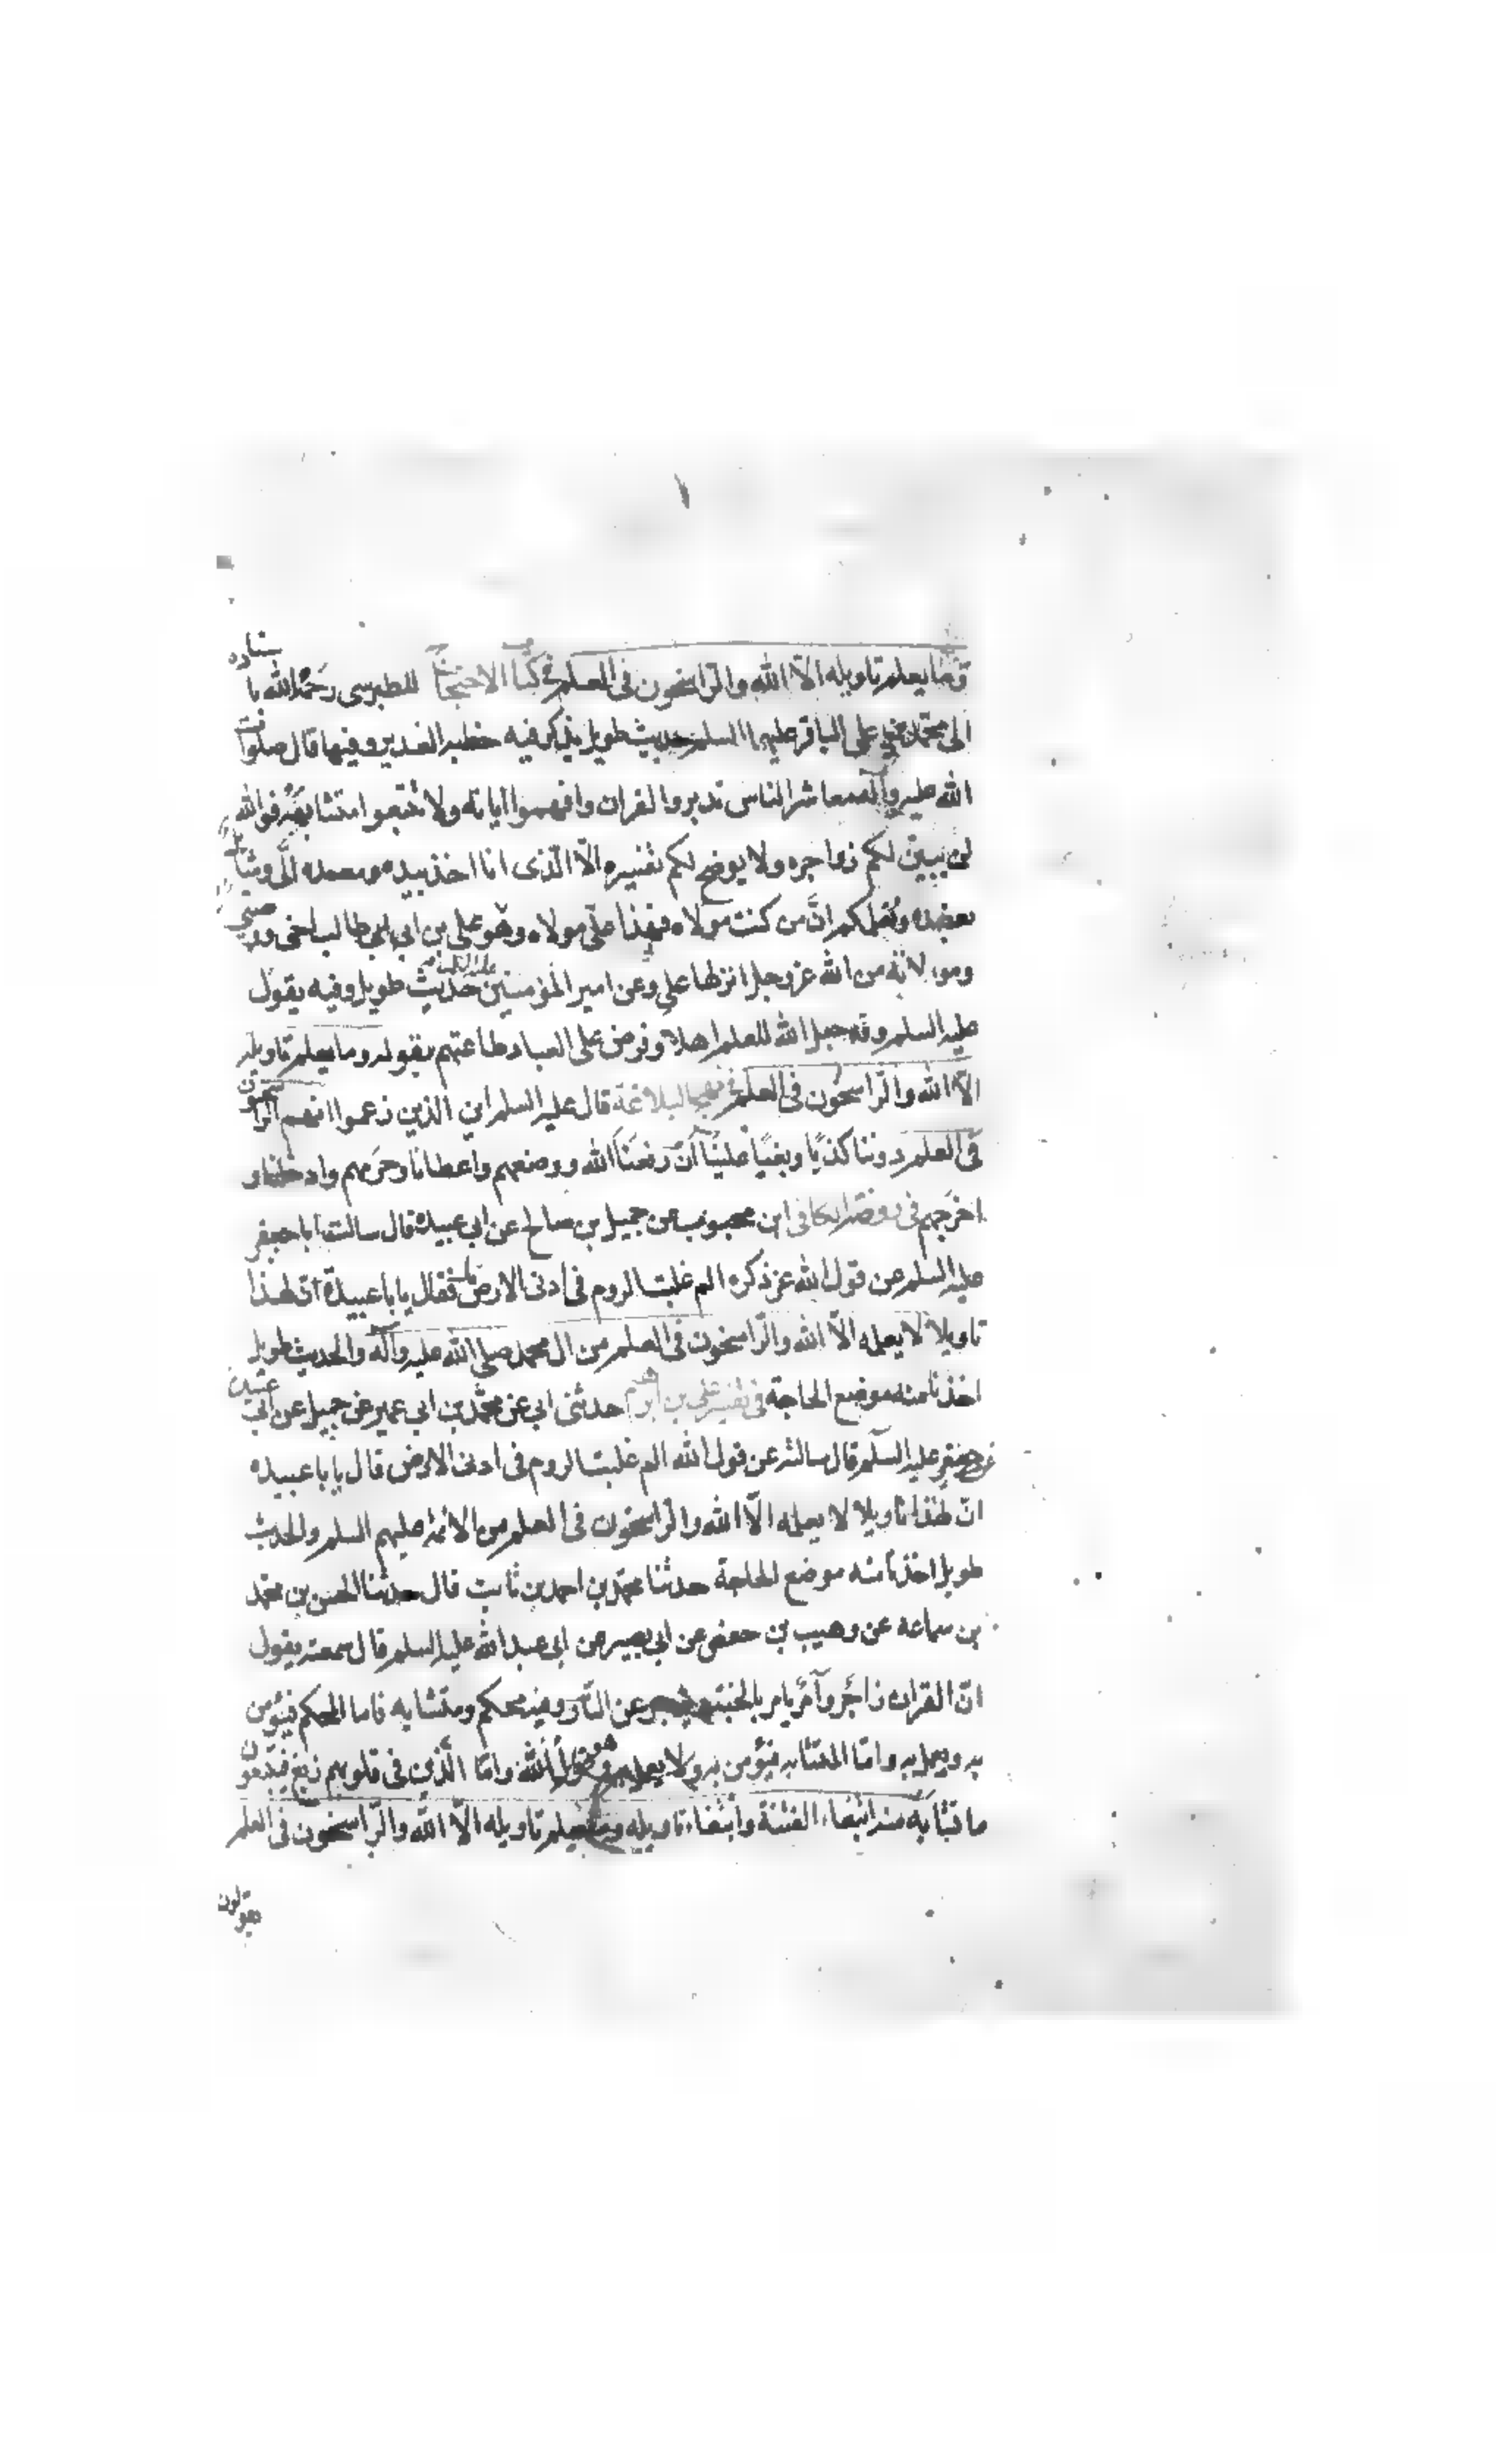 وما يعلم تاويله الا الله والراسخون فى العلم فى كتاب الاحتجاج للطبرسى رحمه الله باسناده
الى محمد بن على الباقر عليهما السلم حديث طويل يذكر فيه خطبة الغدير وفيها قال صلوات
الله عليه وآله معاشر الناس تدبروا القران وافهموا اياته ولا تتبعوا متشابهه فوالله
لن يبين لكم زواجره ولا يوضح لكم تفسيره الا الذى انا اخذ بيده ومصعده الى وشائل
بعضده ومعلمكم ان من كنت مولاه فهذا على مولاه وهو على بن ابى طالب اخى ووصيى
وموالاته من الله عز وجل انزلها على وعن امير المؤمنين عليه السلم حديث طويل وفيه يقول
عليه السلم وقد جعل الله للعلم اهلا وفرض على العباد طاعتهم بقوله وما يعلم تاويله
الا الله والراسخون فى العلم فى نهج البلاغة قال عليه السلم اين الذين زعموا انهم الراسخون
فى العلم دوننا كذبا وبغيا علينا ان رفعنا الله ووضعهم واعطانا وحرمهم وادخلنا و
اخرجهم فى روضة الكافى ابن محبوب عن جميل بن صالح عن ابى عبيدة قال سالت ابا جعفر
عليه السلم عن قول الله عز ذكره الم غلبت الروم فى ادنى الارض فقال يابا عبيدة ان لهذا
تاويلا لا يعلمه الا الله والراسخون فى العلم من ال محمد صلى الله عليه وآله والحديث طويل
اخذنا منه موضع الحاجة فى تفسير على بن ابرهيم حدثنى ابى عن محمد بن ابى عمير عن جميل عن ابى عبيدة
عن ابى جعفر عليه السلم قال سالته عن قول الله الم غلبت الروم فى ادنى الارض قال يابا عبيده
ان لهذا تاويلا لا يعلمه الا الله والراسخون فى العلم من الائمة عليهم السلم والحديث
طويل اخذنا منه موضع الحاجة حدثنا محمد بن احمد بن ثابت قال حدثنا الحسن بن محمد
بن سماعه عن وهيب بن حفص عن ابى بصير عن ابى عبد الله عليه السلم قال سمعته يقول
ان القران زاجر وآمر يامر بالجنة ويزجر عن النار وفيه محكم ومتشابه فاما المحكم فيؤمن
به ويعمل به واما المتشابه فيؤمن به ولا يعمل به وهو قول الله واما الذين فى قلوبهم زيغ فيتبعون
ما تشابه منه ابتغاء الفتنة وابتغاء تاويله وما يعلم تاويله الا الله والراسخون فى العلم
يقولون